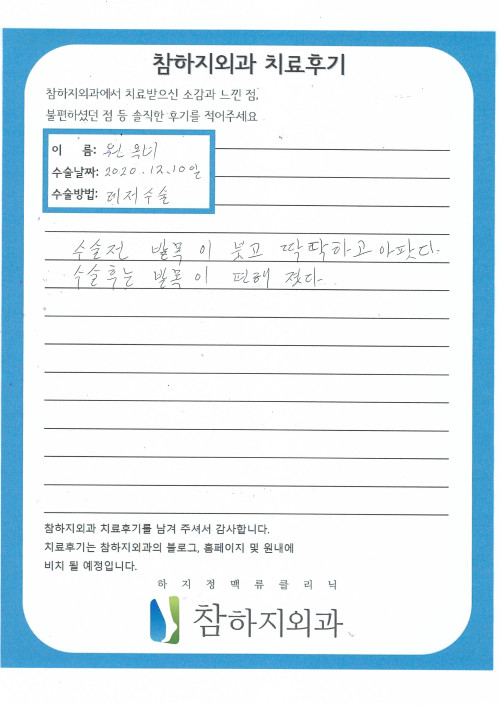 참하지외과 치료후기
참하지외과에서 치료받으신 소감과 느낀 점,
불편하셨던 점 등 솔직한 후기를 적어주세요
이 름: 원옥녀
수술날짜: 2020.12.10일
수술방법: 레저수술
수술전 발목이 붓고 딱딱하고 아팟다.
수술후는 발목이 편해 졌다.
참하지외과 치료후기를 남겨 주셔서 감사합니다.
치료후기는 참하지외과의 블로그, 홈페이지 및 원내에
비치 될 예정입니다.
하지정맥류클리닉
참하지외과